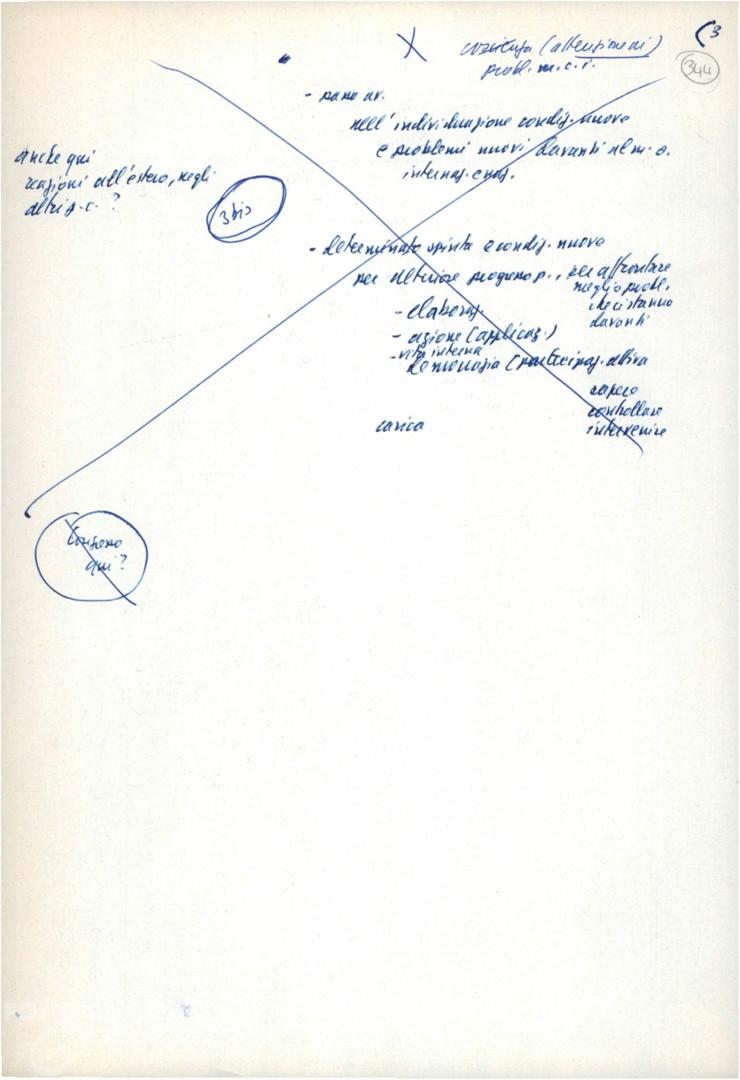 (3
344
X coscienza (attenzione ai)
probl. m.c.i.
- passo av.
nell'individuazione condiz. nuove
e problemi nuovi davanti al m. o.
internaz. e naz.
anche qui
reazioni all'estero, negli
altri p.c. ?
3 bis
- determinato spinta e condiz. nuove
per ulteriore progresso p., per affrontare
meglio probl.
che ci stanno
davanti
- elaboraz.
- azione (applicaz.)
- vita interna
democrazia (partecipaz. attiva
sapere
controllare
intervenire
carica
qui ?